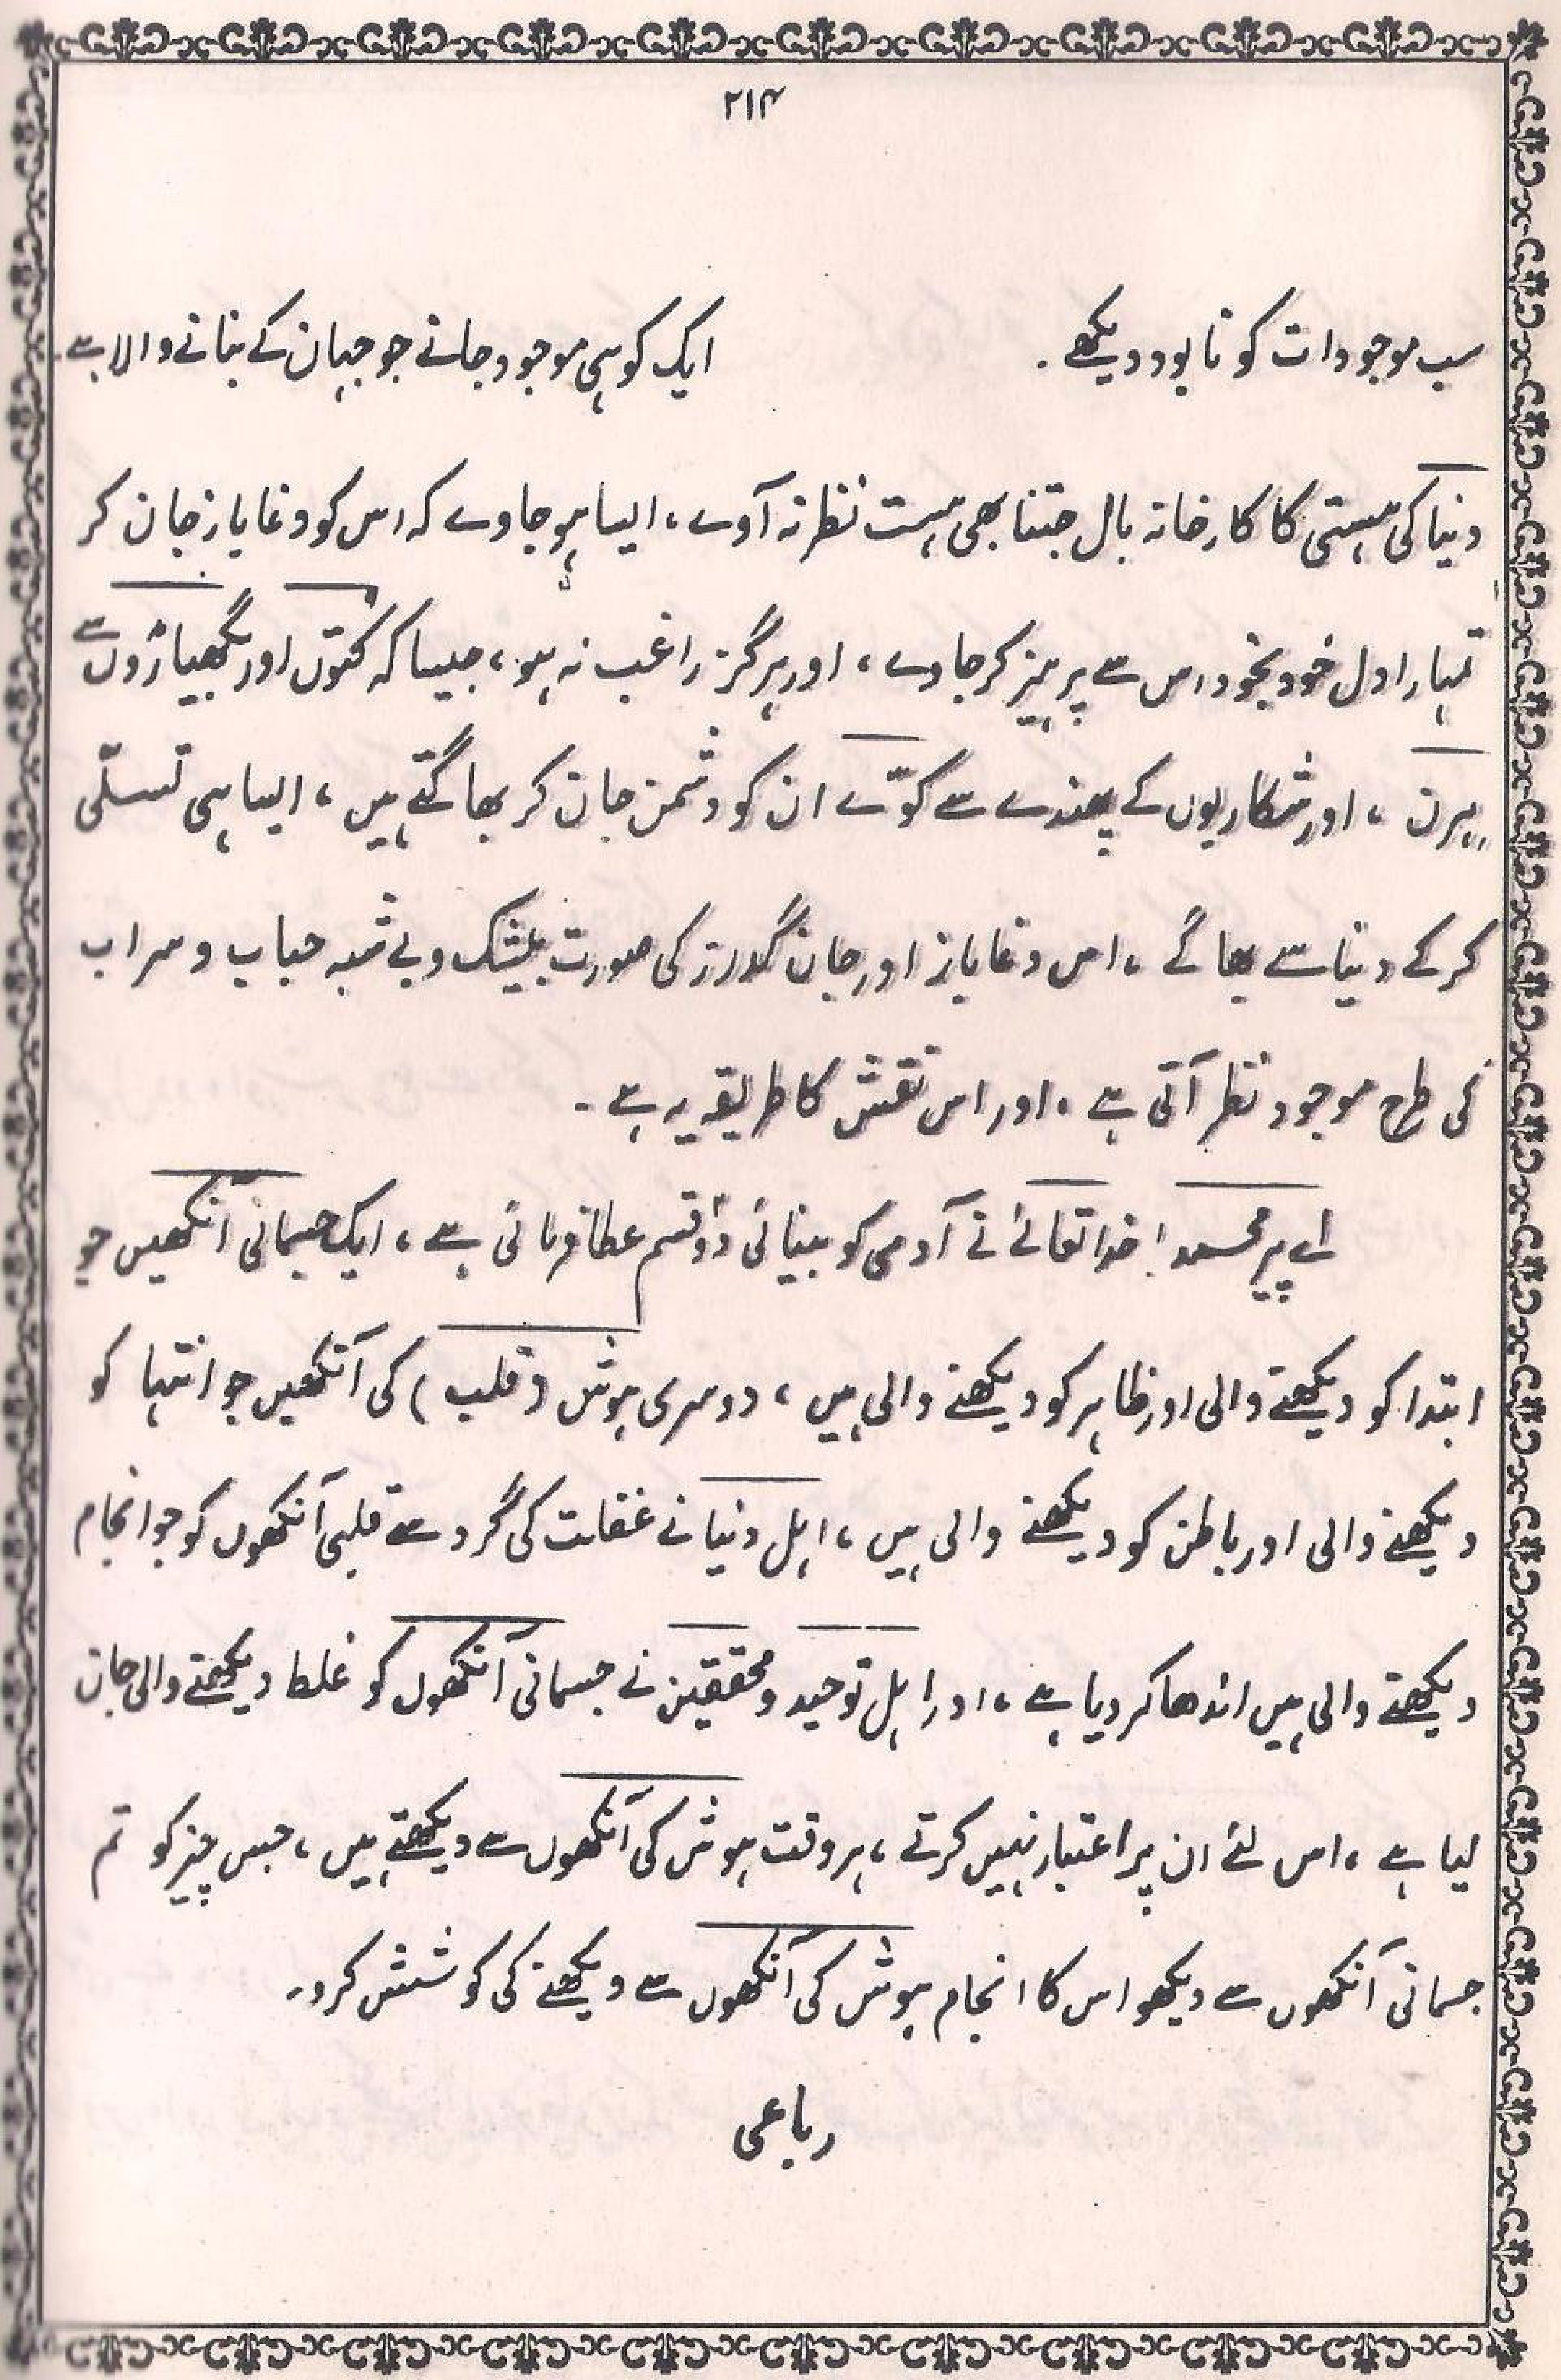 ۲۱۴
سب موجودات کو نابود دیکھے۔ ایک کو ہی موجود جانے جو جہان کے بنانے والا ہے۔
دنیا کی ہستی کا کارخانہ بال جتنا بھی ہست نظر نہ آوے، ایسا ہو جاوے کہ اس کو دغا باز جان کر
تمہارا دل خود بخود اس سے پرہیز کر جاوے، اور ہرگز راغب نہ ہو، جیسا کہ کتوں اور بگھیاڑوں سے
ہرن، اور شکاریوں کے پھندے سے کوّے ان کو دشمن جان کر بھاگتے ہیں، ایسا ہی تسلّی
کر کے دنیا سے بھاگے، اس دغا باز اور جان کی صورت بیشک و بے شبہ حباب و سراب
کی طرح موجود نظر آتی ہے، اور اس نقش کا طریقہ یہ ہے۔
اے پیر محمد! خدا تعالےٰ نے آدمی کو بینائی دو قسم عطا فرمائی ہے، ایک جسمانی آنکھیں جو
ابتدا کو دیکھنے والی اور ظاہر کو دیکھنے والی ہیں، دوسری ہوش (قلب) کی آنکھیں جو انتہا کو
دیکھنے والی اور باطن کو دیکھنے والی ہیں، اہل دنیا نے غفلت کی گرد سے قلبی آنکھوں کو جو انجام
دیکھنے والی ہیں اندھا کر دیا ہے، اور اہل توحید و محققین نے جسمانی آنکھوں کو غلط دیکھنے والی جان
لیا ہے، اس لئے ان پر اعتبار نہیں کرتے، ہر وقت ہوش کی آنکھوں سے دیکھتے ہیں، جس چیز کو تم
جسمانی آنکھوں سے دیکھو اس کا انجام ہوش کی آنکھوں سے دیکھنے کی کوشش کرو۔
رباعی